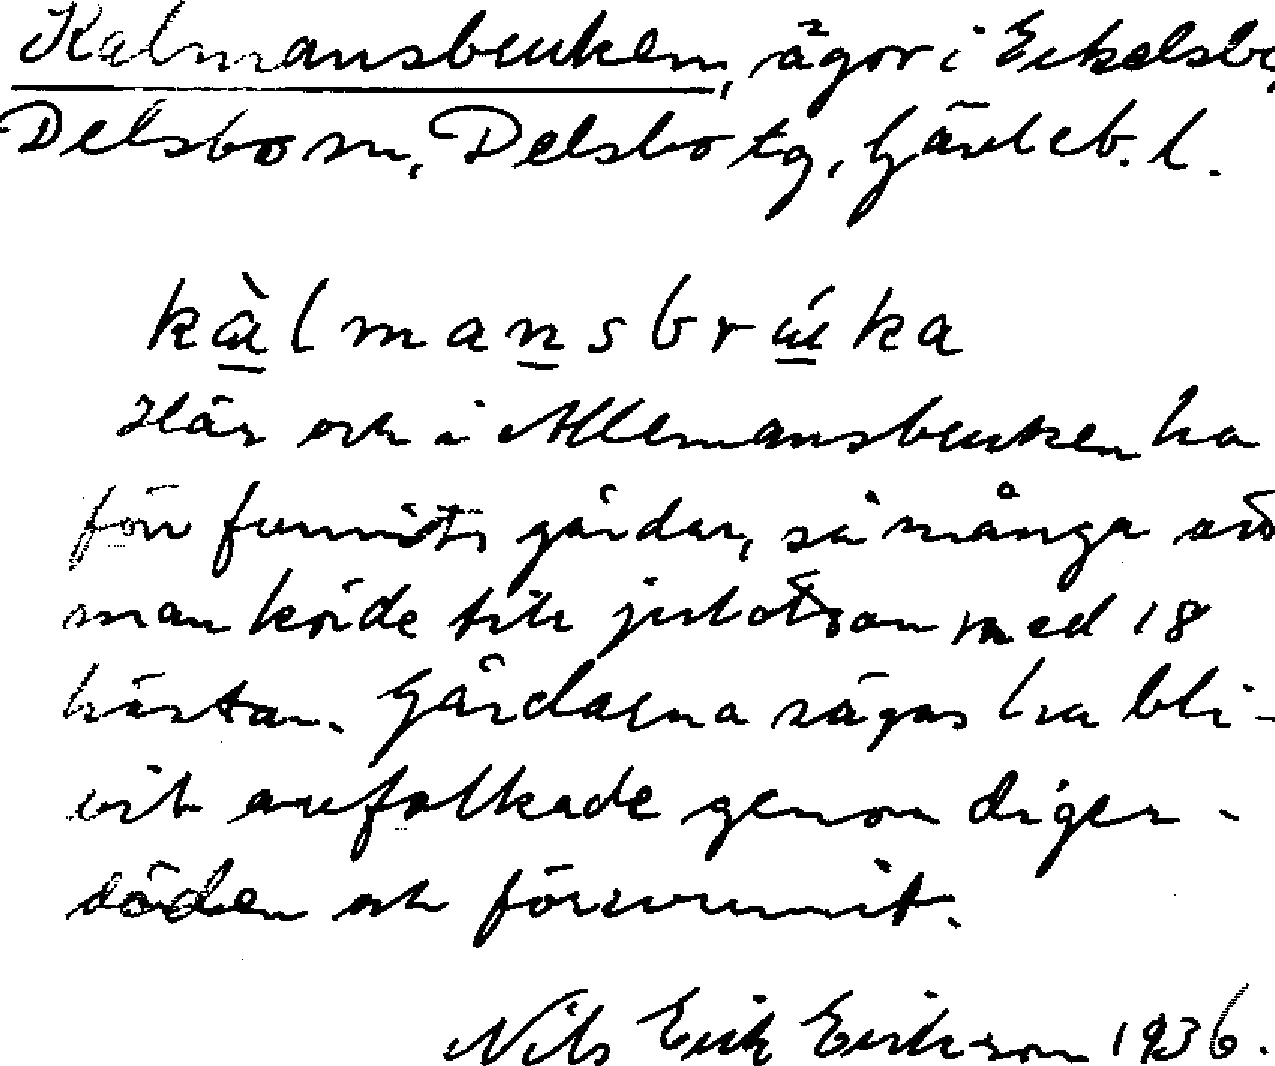 Kalmansbruken, ägor i Eckelsby,
Delsbo sn, Delsbo tg, Gävleb. l.
kàlmansbrúka
Här och i Allemansbruken ha
förr funnits gårdar, så många att
man körde till julottan med 18
hästar. Gårdarna sägas ha bli-
vit avfolkade genom diger-
döden och försvunnit.
Nils Erik Erikson 1936.